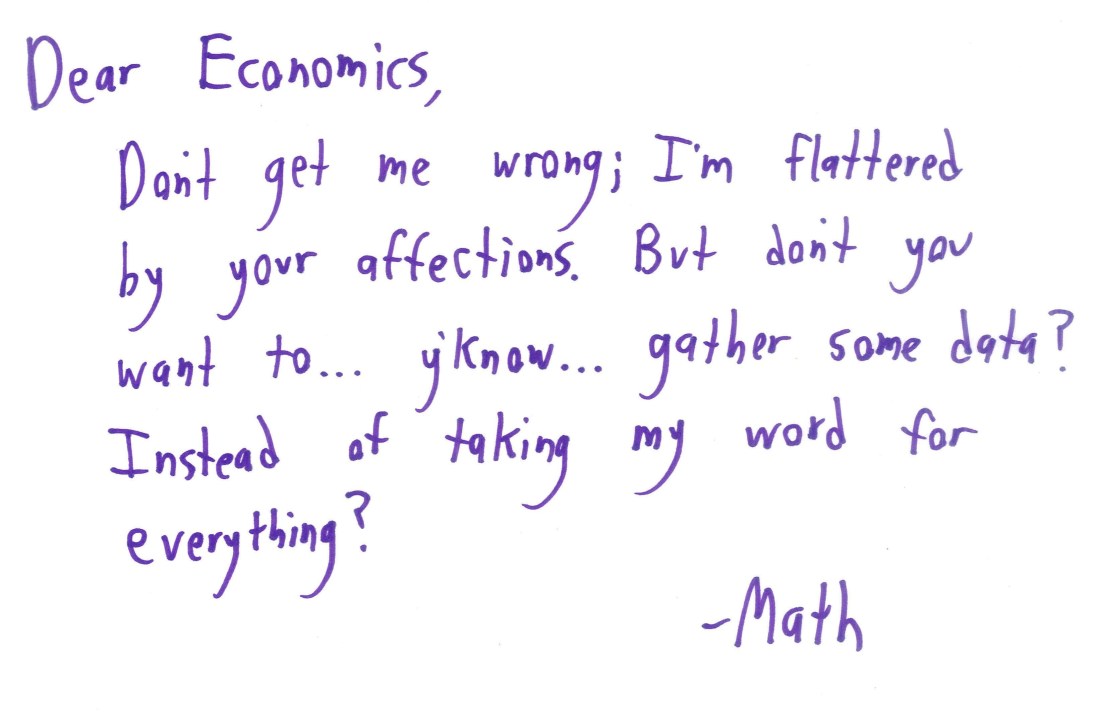 Dear Economics,
Don't get me wrong; I'm flattered
by your affections. But don't you
want to... y'know... gather some data?
Instead of taking my word for
everything?
-Math